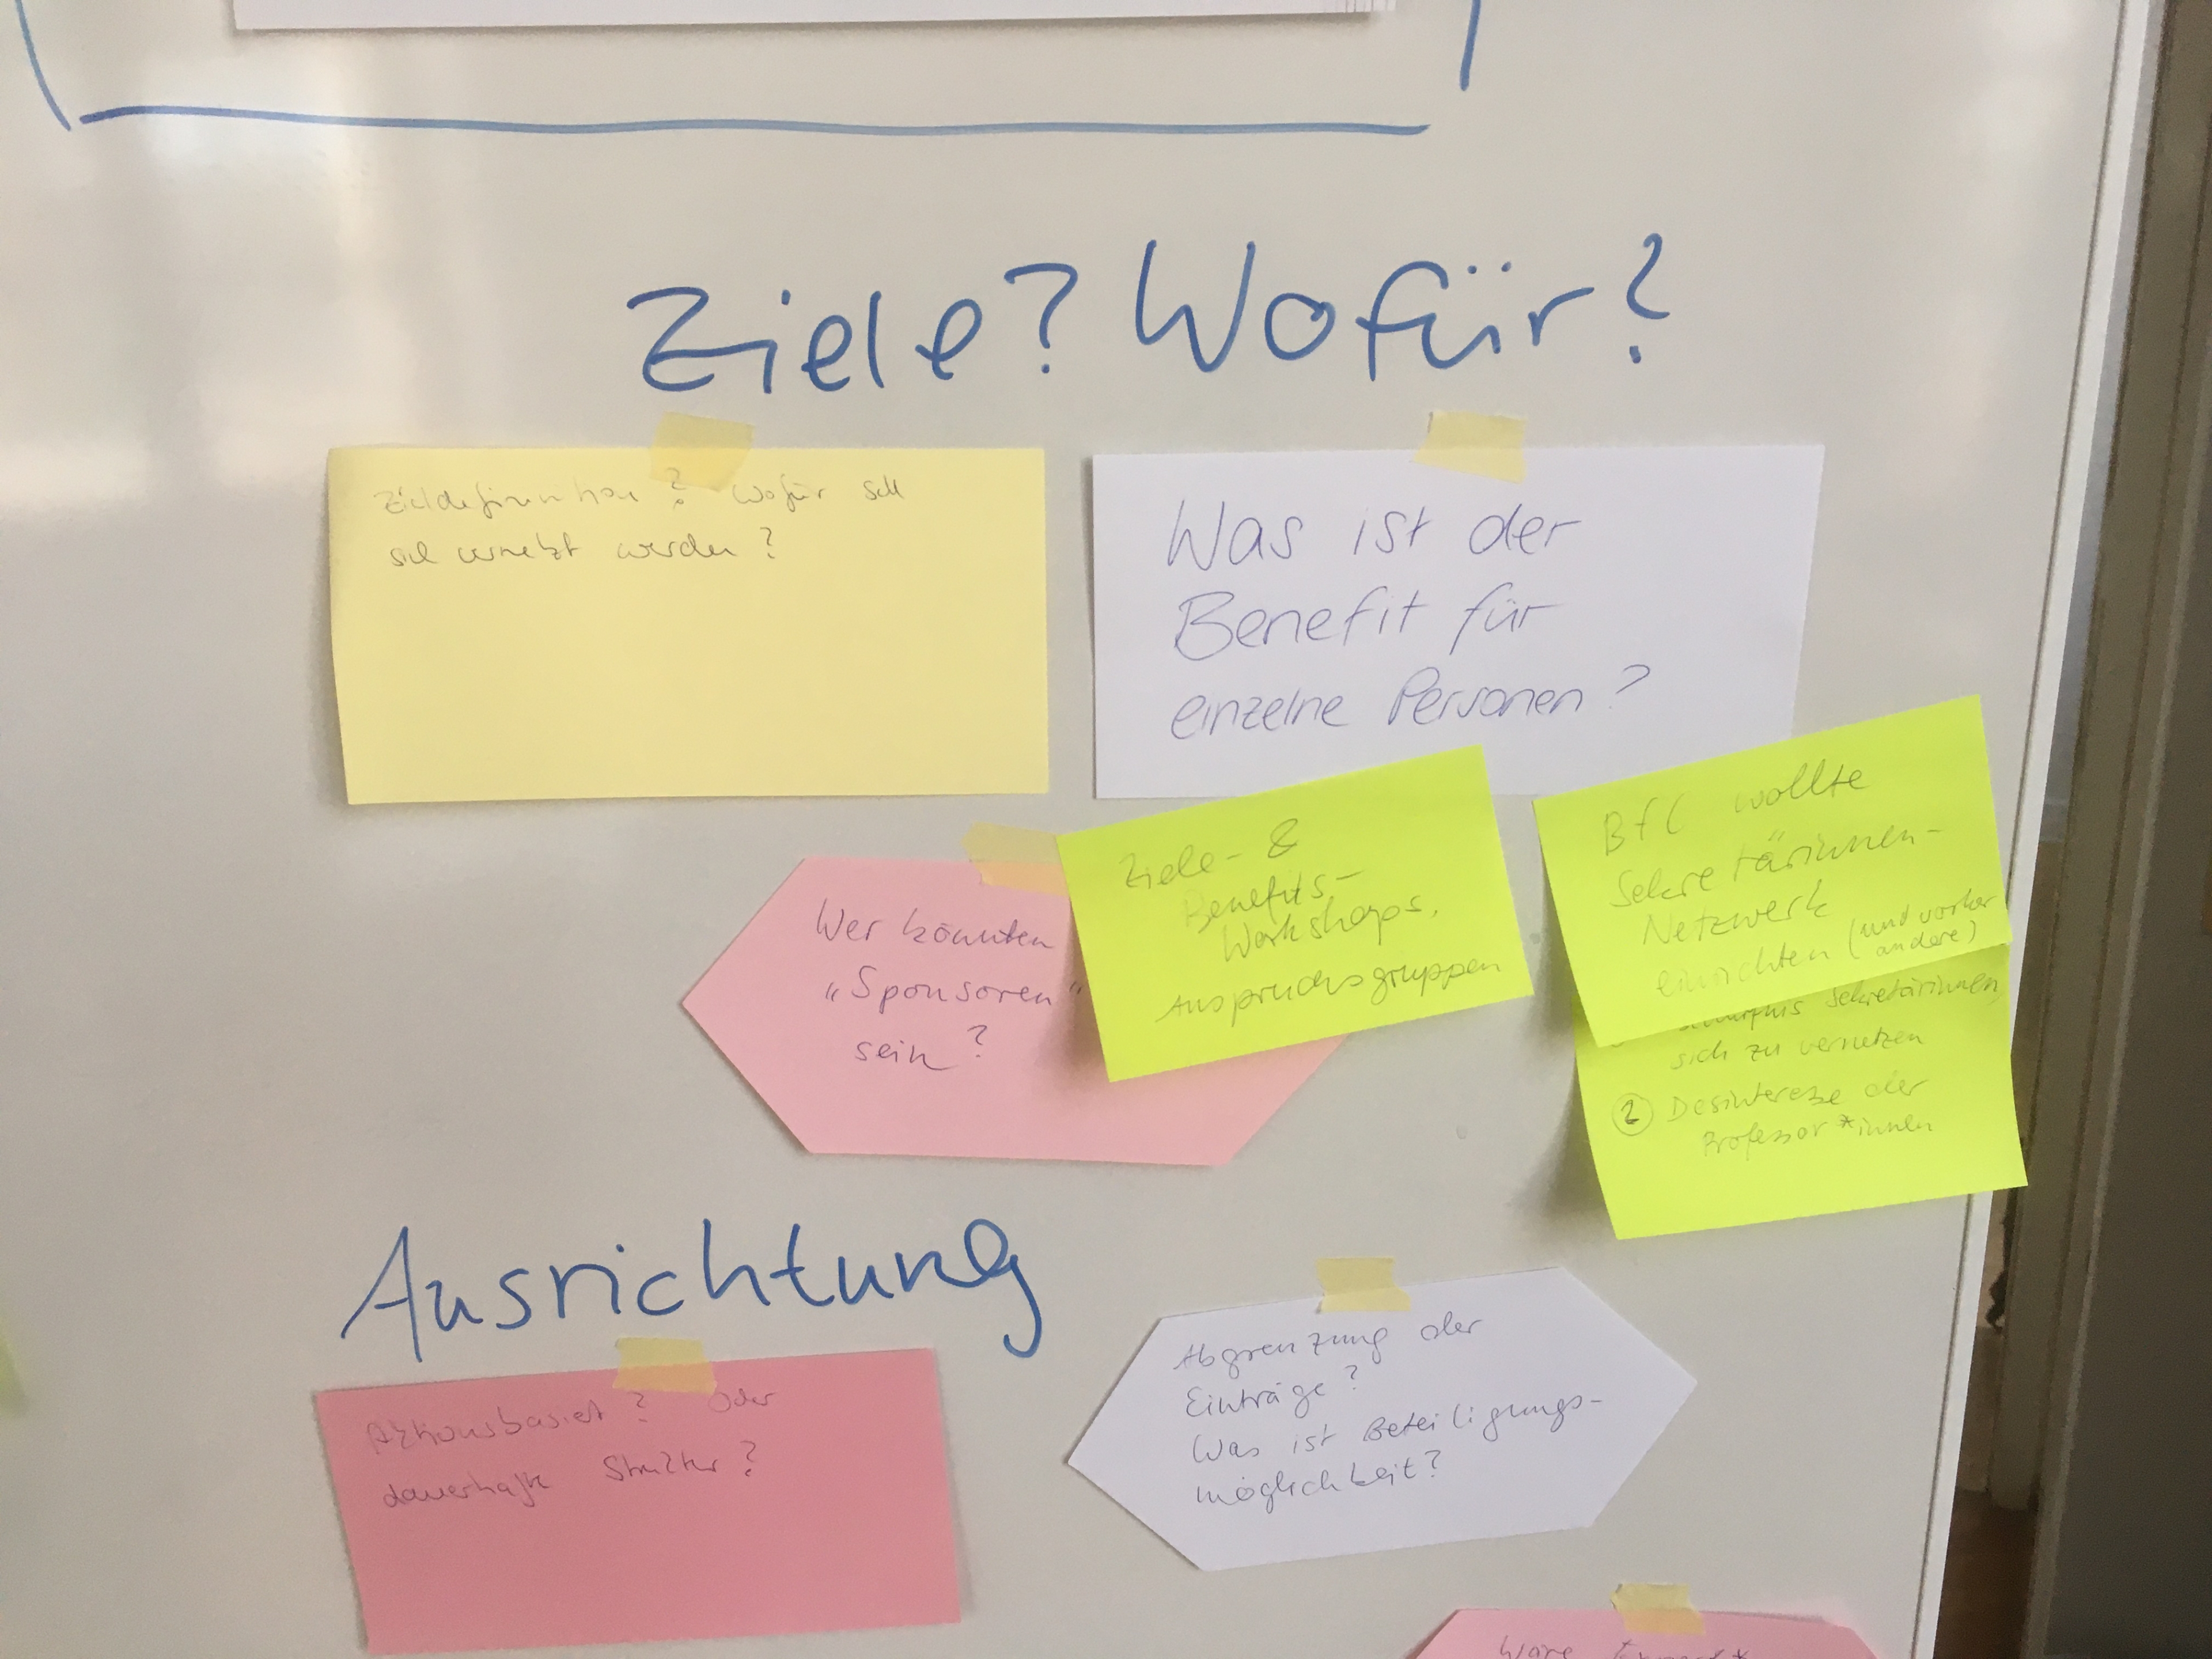 Ziele? Wofür?
Zieldefinition? Wofür soll
sich vernetzt werden?
Was ist der
Benefit für
einzelne Personen?
Wer könnten
„Sponsoren"
sein?
Ziele- &
Benefits-
Workshops,
Anspruchsgruppen
BfC wollte
Sekretärinnen-
Netzwerk
einrichten (und vorher
andere)
Sekretärinnen,
sich zu vernetzen
② Desinteresse der
Professor*innen
Ausrichtung
Aktionsbasiert? Oder
dauerhafte Struktur?
Abgrenzung der
Einträge?
Was ist Beteiligungs-
möglichkeit?